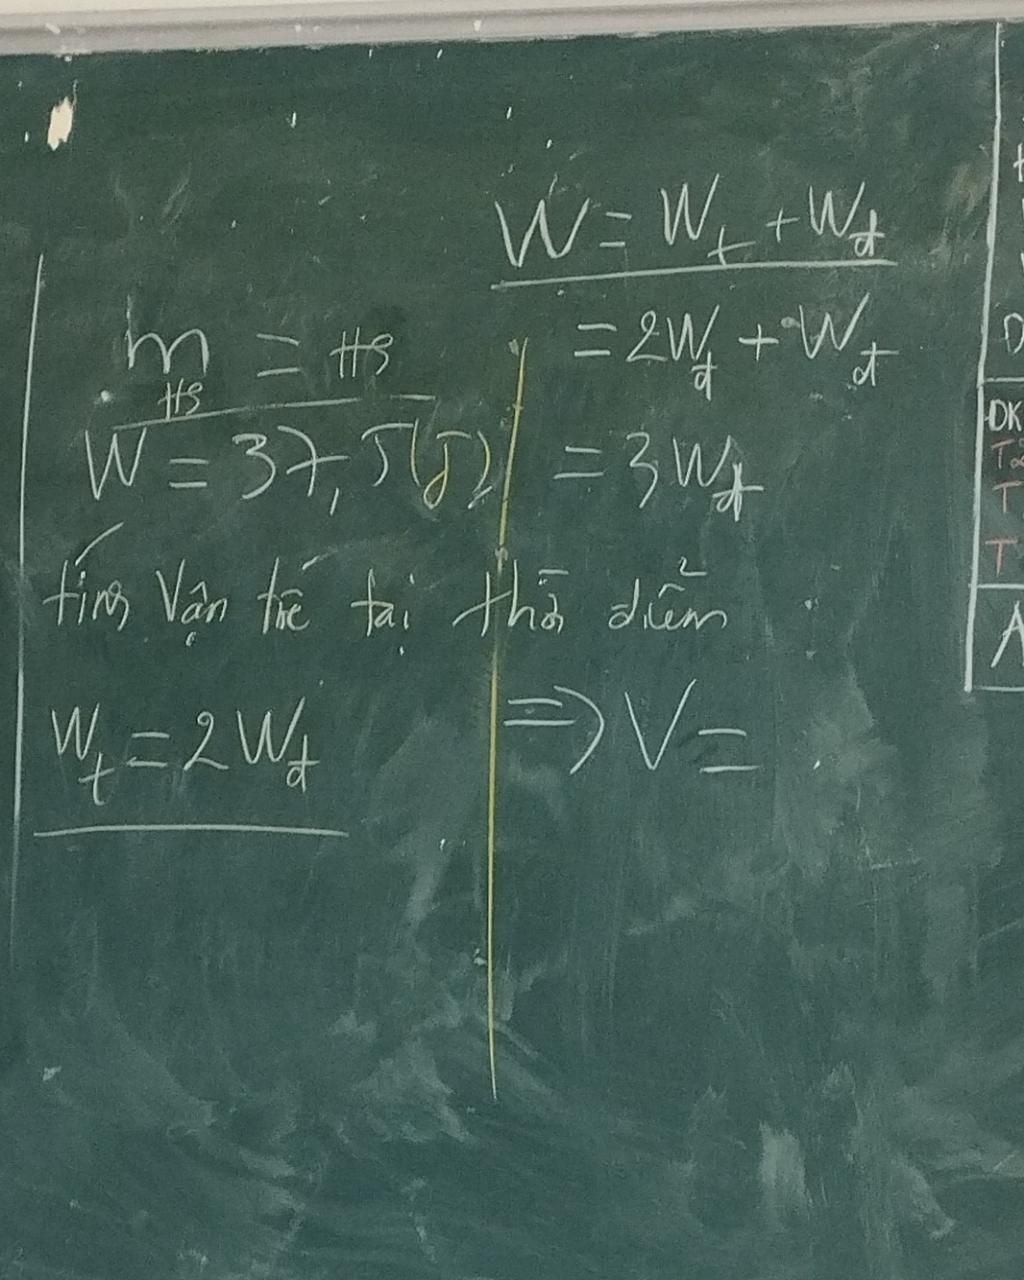 m_HS = HS
W = 37,5(J)
tính vận tốc tại thời điểm
W_t = 2W_đ
W = W_t + W_đ
= 2W_đ + W_đ
= 3W_đ
=> V =
D
ĐK
T
T
A